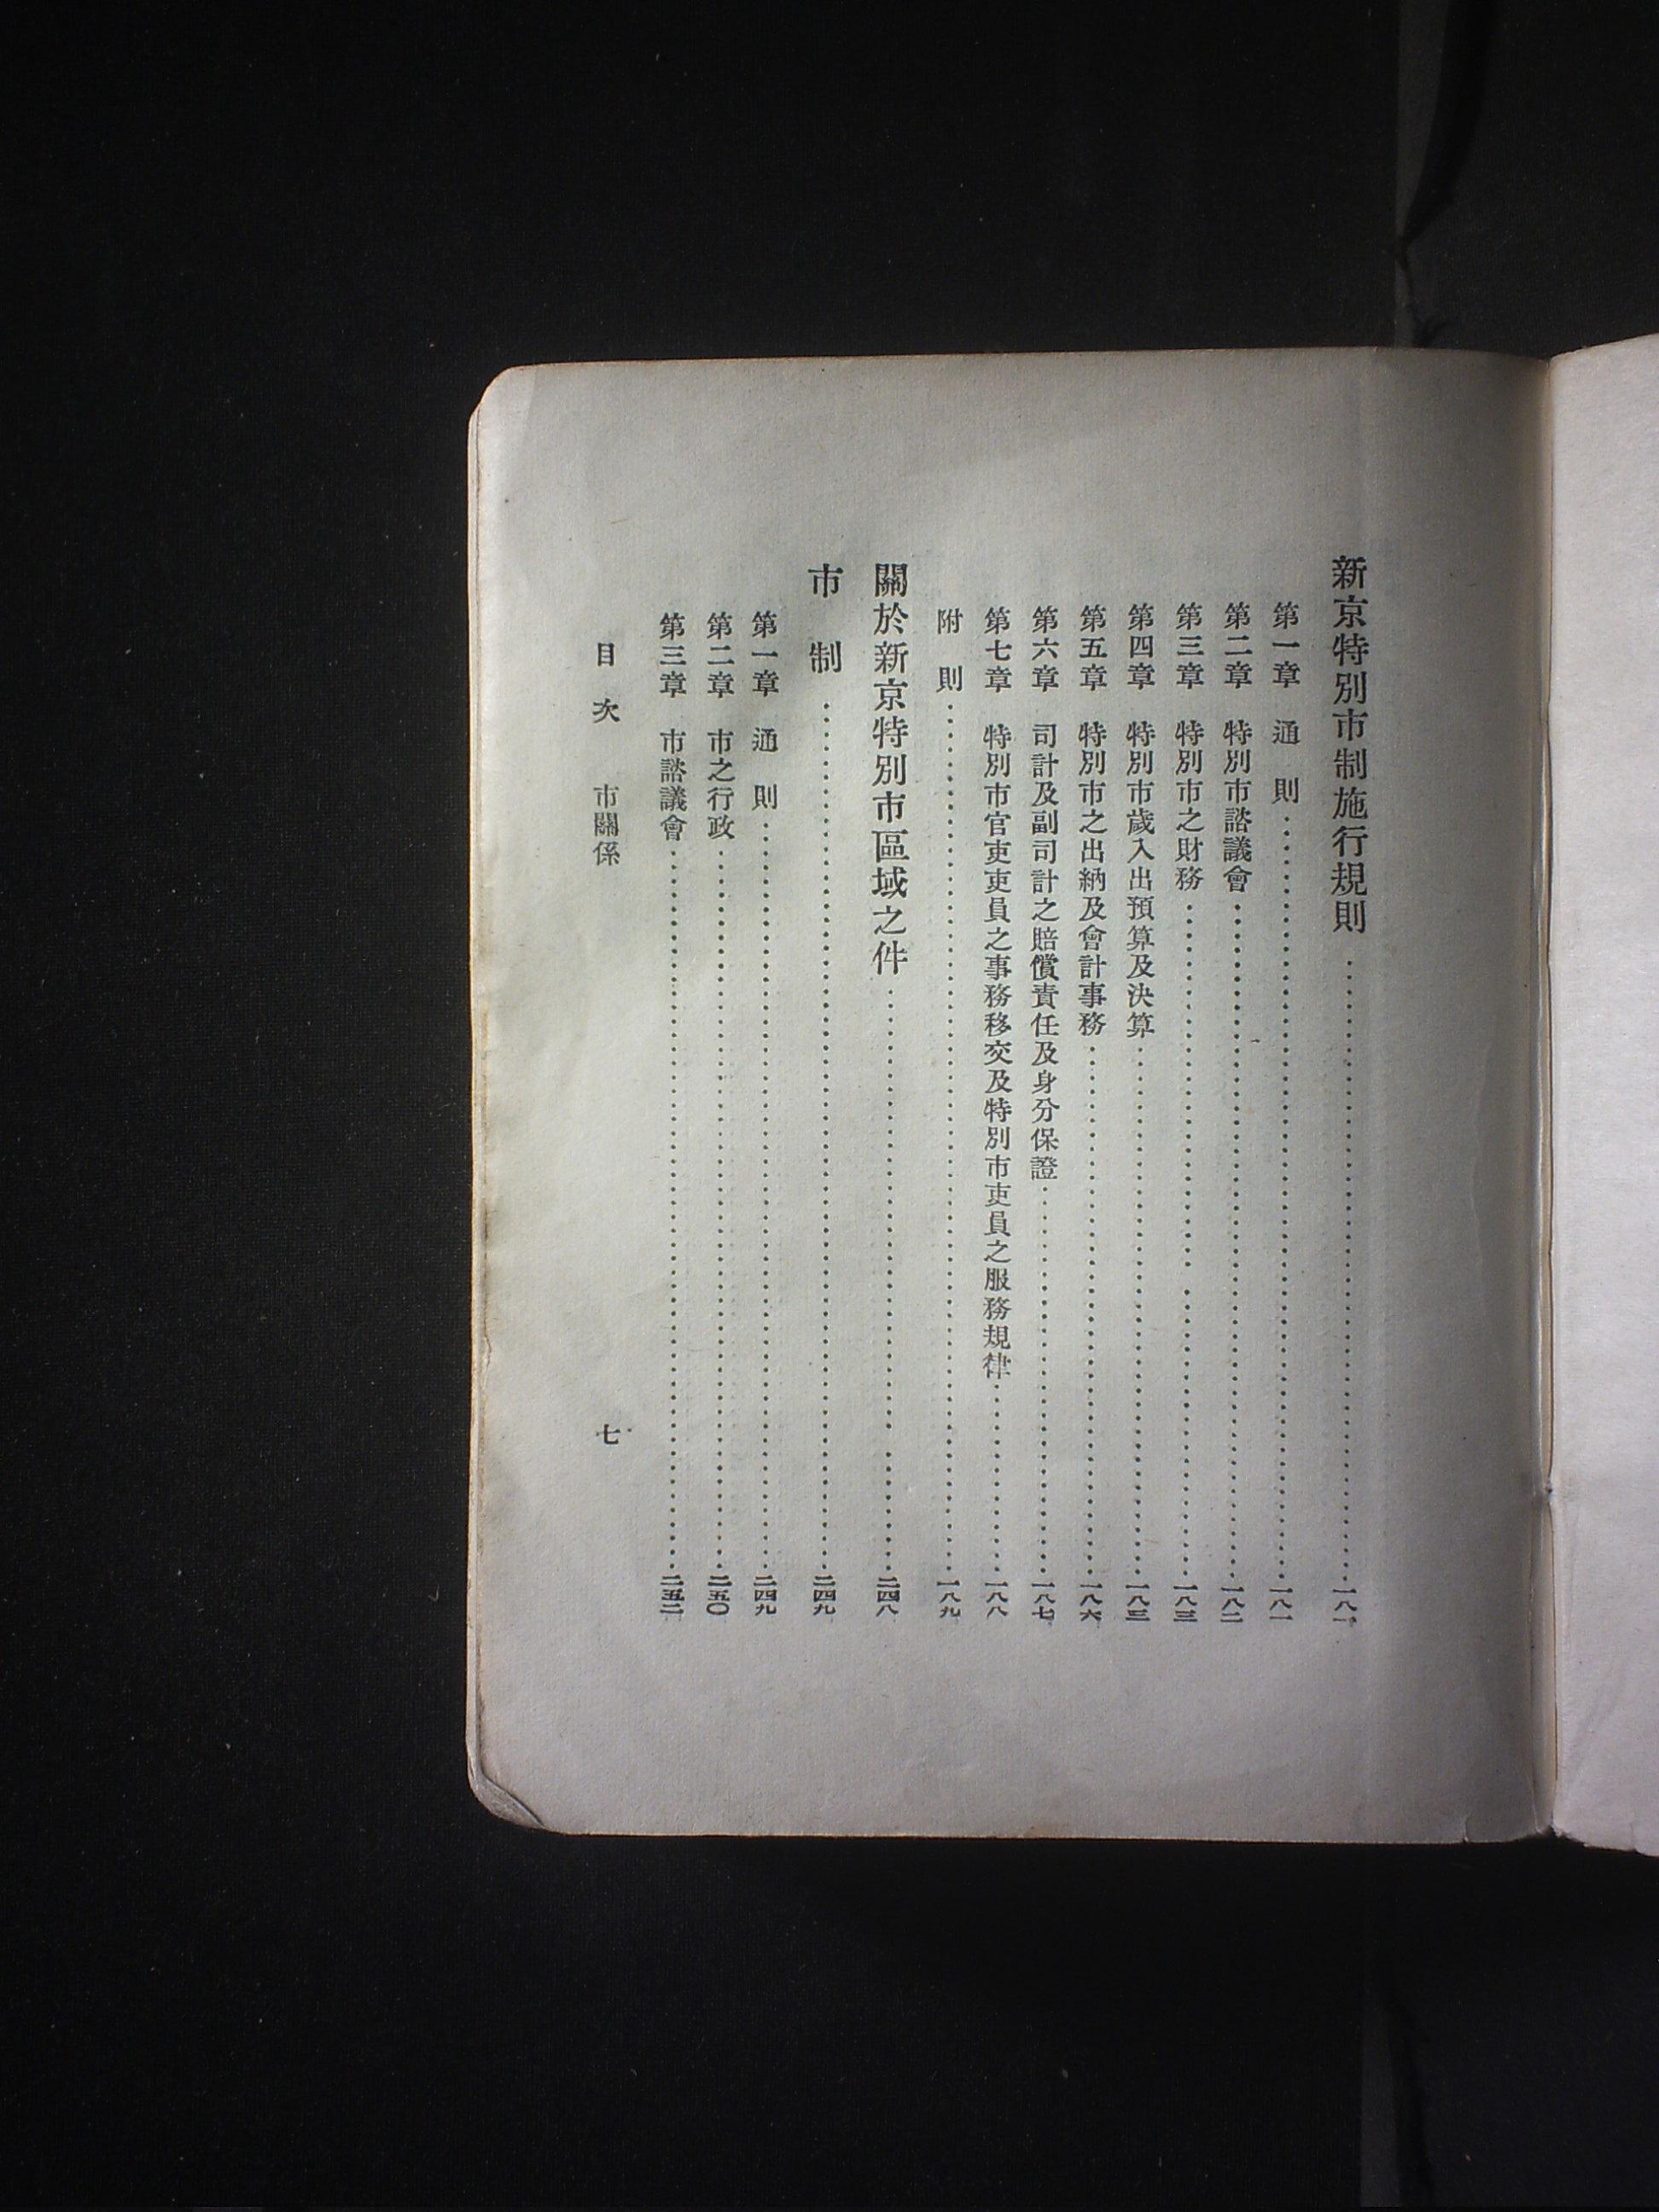 新京特別市制施行規則……一八一
第一章　通　則……一八一
第二章　特別市諮議會……一八二
第三章　特別市之財務……一八三
第四章　特別市歲入出預算及決算……一八三
第五章　特別市之出納及會計事務……一八六
第六章　司計及副司計之賠償責任及身分保證……一八七
第七章　特別市官吏吏員之事務移交及特別市吏員之服務規律……一八八
附　則……一八九
關於新京特別市區域之件……二四八
市　制……二四九
第一章　通　則……二四九
第二章　市之行政……二五〇
第三章　市諮議會……二五二
目　次　　市關係　　七